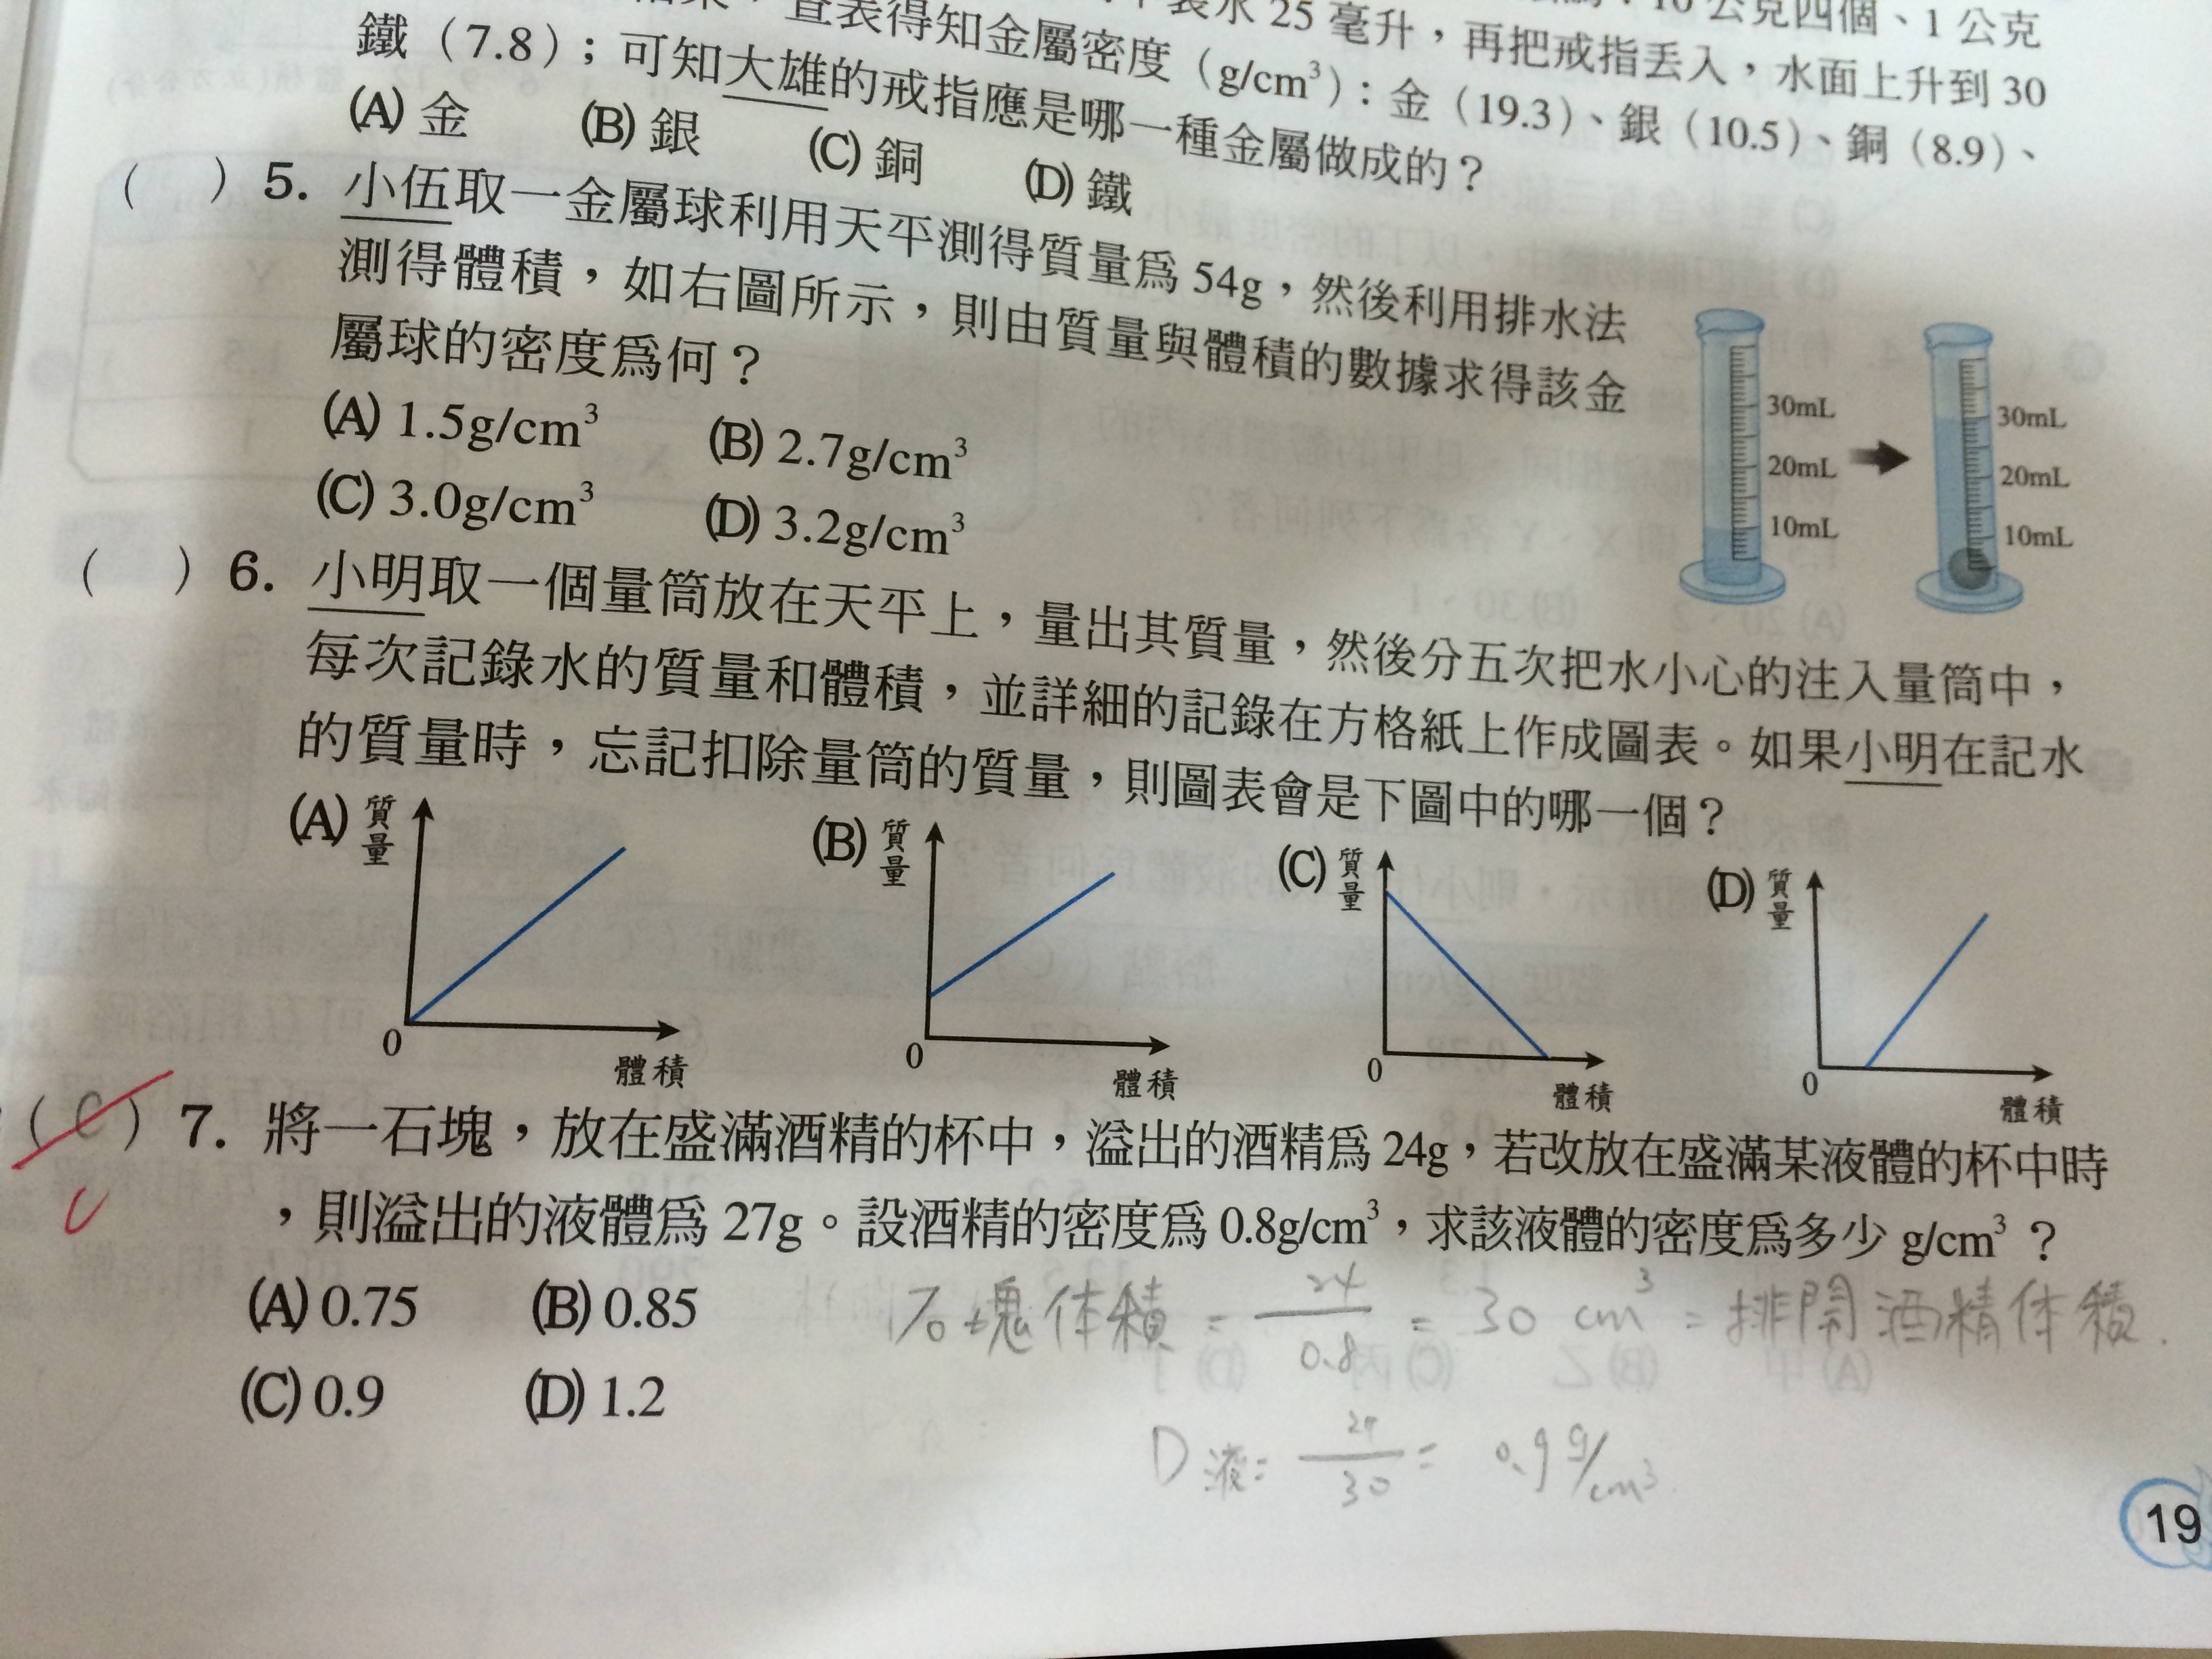 水 25 毫升，再把戒指丟入，水面上升到 30
10 公克四個、1 公克
查表得知金屬密度（g/cm³）：金（19.3）、銀（10.5）、銅（8.9）、
鐵（7.8）；可知大雄的戒指應是哪一種金屬做成的？
(A) 金 (B) 銀 (C) 銅 (D) 鐵
（ ）5. 小伍取一金屬球利用天平測得質量為 54g，然後利用排水法
測得體積，如右圖所示，則由質量與體積的數據求得該金
屬球的密度為何？
(A) 1.5g/cm³ (B) 2.7g/cm³
(C) 3.0g/cm³ (D) 3.2g/cm³
30mL
20mL
10mL
30mL
20mL
10mL
（ ）6. 小明取一個量筒放在天平上，量出其質量，然後分五次把水小心的注入量筒中，
每次記錄水的質量和體積，並詳細的記錄在方格紙上作成圖表。如果小明在記水
的質量時，忘記扣除量筒的質量，則圖表會是下圖中的哪一個？
(A) 質量 0 體積
(B) 質量 0 體積
(C) 質量 0 體積
(D) 質量 0 體積
（C）7. 將一石塊，放在盛滿酒精的杯中，溢出的酒精為 24g，若改放在盛滿某液體的杯中時
，則溢出的液體為 27g。設酒精的密度為 0.8g/cm³，求該液體的密度為多少 g/cm³？
(A) 0.75 (B) 0.85
(C) 0.9 (D) 1.2
石塊体積 = 24/0.8 = 30 cm³ = 排開酒精体積.
D液 = 27/30 = 0.9 g/cm³
19